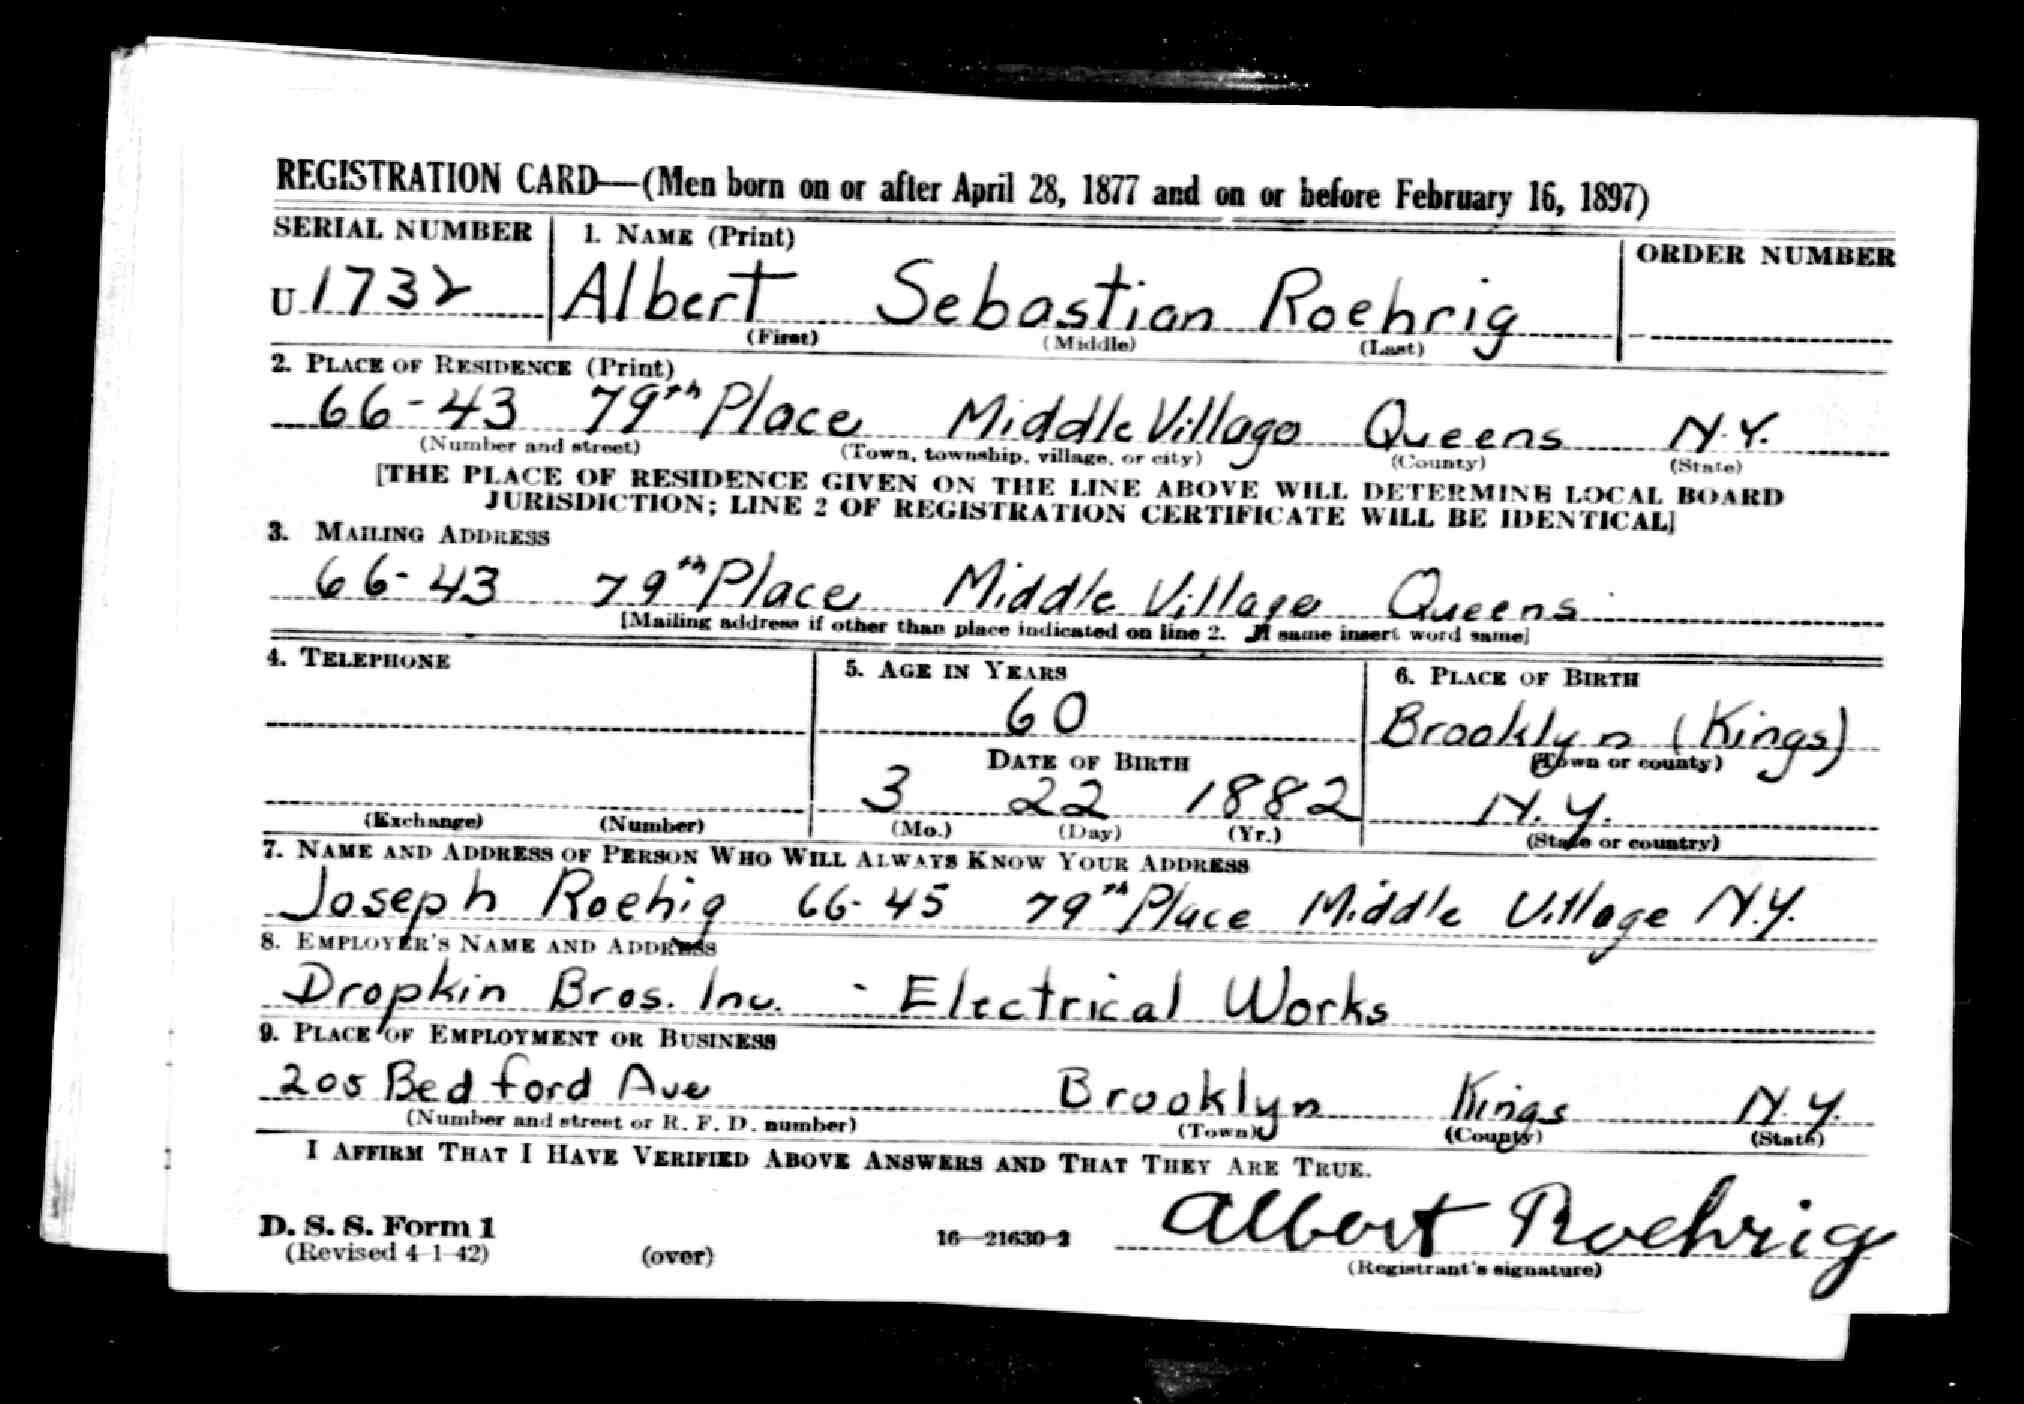 REGISTRATION CARD—(Men born on or after April 28, 1877 and on or before February 16, 1897)
SERIAL NUMBER 1. NAME (Print) ORDER NUMBER
U 1732 Albert Sebastian Roehrig
(First) (Middle) (Last)
2. PLACE OF RESIDENCE (Print)
66-43 79th Place Middle Village Queens N.Y.
(Number and street) (Town, township, village, or city) (County) (State)
[THE PLACE OF RESIDENCE GIVEN ON THE LINE ABOVE WILL DETERMINE LOCAL BOARD
JURISDICTION; LINE 2 OF REGISTRATION CERTIFICATE WILL BE IDENTICAL]
3. MAILING ADDRESS
66-43 79th Place Middle Village Queens
[Mailing address if other than place indicated on line 2. If same insert word same]
4. TELEPHONE 5. AGE IN YEARS 6. PLACE OF BIRTH
60 Brooklyn (Kings)
DATE OF BIRTH (Town or county)
3 22 1882 N.Y.
(Exchange) (Number) (Mo.) (Day) (Yr.) (State or country)
7. NAME AND ADDRESS OF PERSON WHO WILL ALWAYS KNOW YOUR ADDRESS
Joseph Roehig 66-45 79th Place Middle Village N.Y.
8. EMPLOYER'S NAME AND ADDRESS
Dropkin Bros. Inc. - Electrical Works
9. PLACE OF EMPLOYMENT OR BUSINESS
205 Bedford Ave Brooklyn Kings N.Y.
(Number and street or R. F. D. number) (Town) (County) (State)
I AFFIRM THAT I HAVE VERIFIED ABOVE ANSWERS AND THAT THEY ARE TRUE.
D. S. S. Form 1 16—21630-2 Albert Roehrig
(Revised 4-1-42) (over) (Registrant's signature)